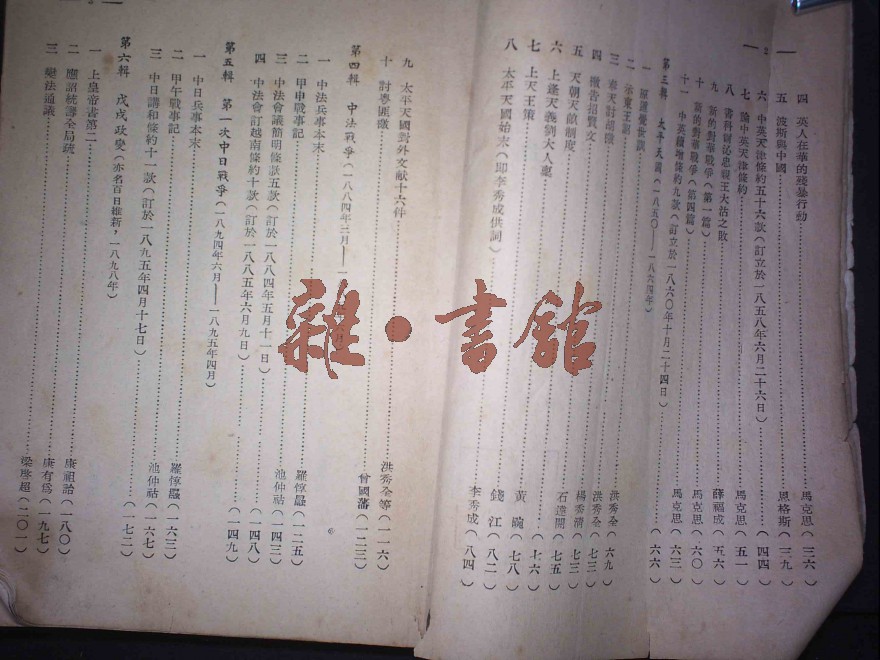 四 英人在華的殘暴行動……馬克思(三六)
五 波斯與中國……恩格斯(三九)
六 中英天津條約五十六款(訂立於一八五八年六月二十六日)……(四四)
七 論中英天津條約……馬克思(五一)
八 書科爾沁忠親王大沽之敗……薛福成(五六)
九 新的對華戰爭(第一篇)
十 新的對華戰爭(第四篇)……馬克思(六〇)
十一 中英續增條約九款(訂立於一八六〇年十月二十四日)……馬克思(六三)
第三輯 太平天國(一八五〇——一八六四年)……(六六)
一 原道覺世訓
二 東王詔
三 奉天討胡檄……洪秀全(六九)
四 檄告招賢文……洪秀全(七三)
五 天朝天畝制度……楊秀清(七三)
六 上逢天義劉大人稟……石達開(七五)
七 上天王策……(七六)
黃 畹(七八)
錢 江(八二)
八 太平天國始末(即李秀成供詞)……李秀成(八四)
九 太平天國對外文献十六件……洪秀全等(一一六)
十 討粤匪檄……曾國藩(一二三)
第四輯 中法戰爭(一八八四年三月——一
月)
一 中法兵事本末……羅惇曧(一二五)
二 甲申戰事記……池仲祜(一四三)
三 中法會議簡明條款五款(訂於一八八四年五月十一日)……(一四八)
四 中法會訂越南條約十款(訂於一八八五年六月九日)……(一四九)
第五輯 第一次中日戰爭(一八九四年六月——一八九五年四月)
一 中日兵事本末……羅惇曧(一六三)
二 甲午戰事記……池仲祜(一六七)
三 中日講和條約十一款(訂於一八九五年四月十七日)……(一七二)
第六輯 戊戌政變(亦名百日維新,一八九八年)
一 上皇帝書第二……康祖詒(一八〇)
二 應詔統籌全局疏……康有爲(一九七)
三 變法通議……梁啓超(二〇一)
雜·書舘